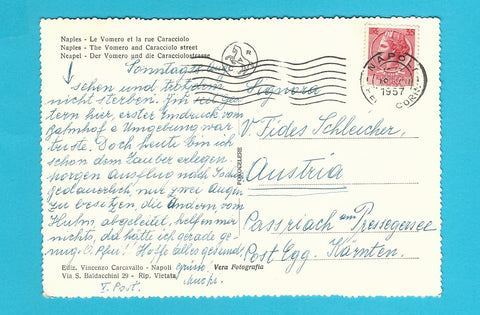 Naples - Le Vomero et la rue Caracciolo
Naples - The Vomero and Caracciolo street
Neapel - Der Vomero und die Caracciolostrasse
Sonntags
schen und trotzdem
nicht sterben. Ich seit ge-
stern hier, erster Eindruck vom
Bahnhof u Umgebung war
triste. Doch heute bin ich
schon dem Zauber erlegen
morgen Ausflug nach
Bedauerlich, nur zwei Augen
zu besitzen, die Andern vom
abgeleitet, helfen mir
nichts, da hätte ich gerade ge-
nug. O Pfui! Hoffe alles gesund.
grüsse
V. Post.
Ediz. Vincenzo Carcavallo - Napoli
Via S. Baldacchini 29 - Rip. Vietata
Vera Fotografia
Signora
V. Fides Schleicher,
Austria
Passriach am Pressegersee
Post Egg. Kärnten.
NAPOLI
1957
55